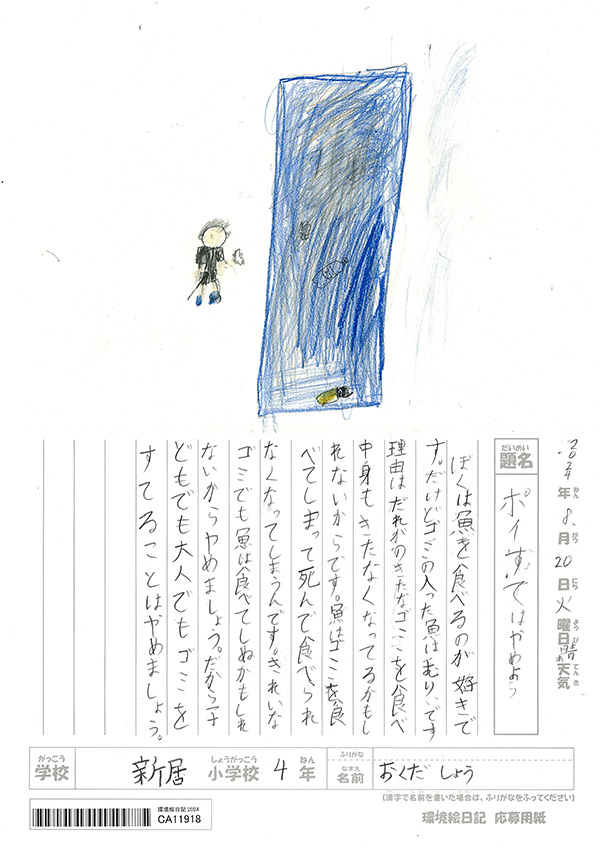 2024年8月20日火曜日晴れ天気
ねん がつ にち ようび てんき
だいめい
題名
ポイすてはやめよう
ぼくは魚を食べるのが好きで
す。だけどゴミの入った魚はむり、です
理由はだれかのきたなゴミを食べ
中身もきたなくなってるかもし
れないからです。魚はゴミを食
べてしまって死んで食べられ
なくなってしまうんです。きれいな
ゴミでも魚は食べてしぬかもしれ
ないからやめましょう。だから子
どもでも大人でもゴミを
すてることはやめましょう。
がっこう しょうがっこう ねん
学校 新居 小学校 4 年
ふりがな
なまえ
名前 おくだ しょう
(漢字で名前を書いた場合は、ふりがなをふってください)
環境絵日記 2024
CA11918
環境絵日記 応募用紙